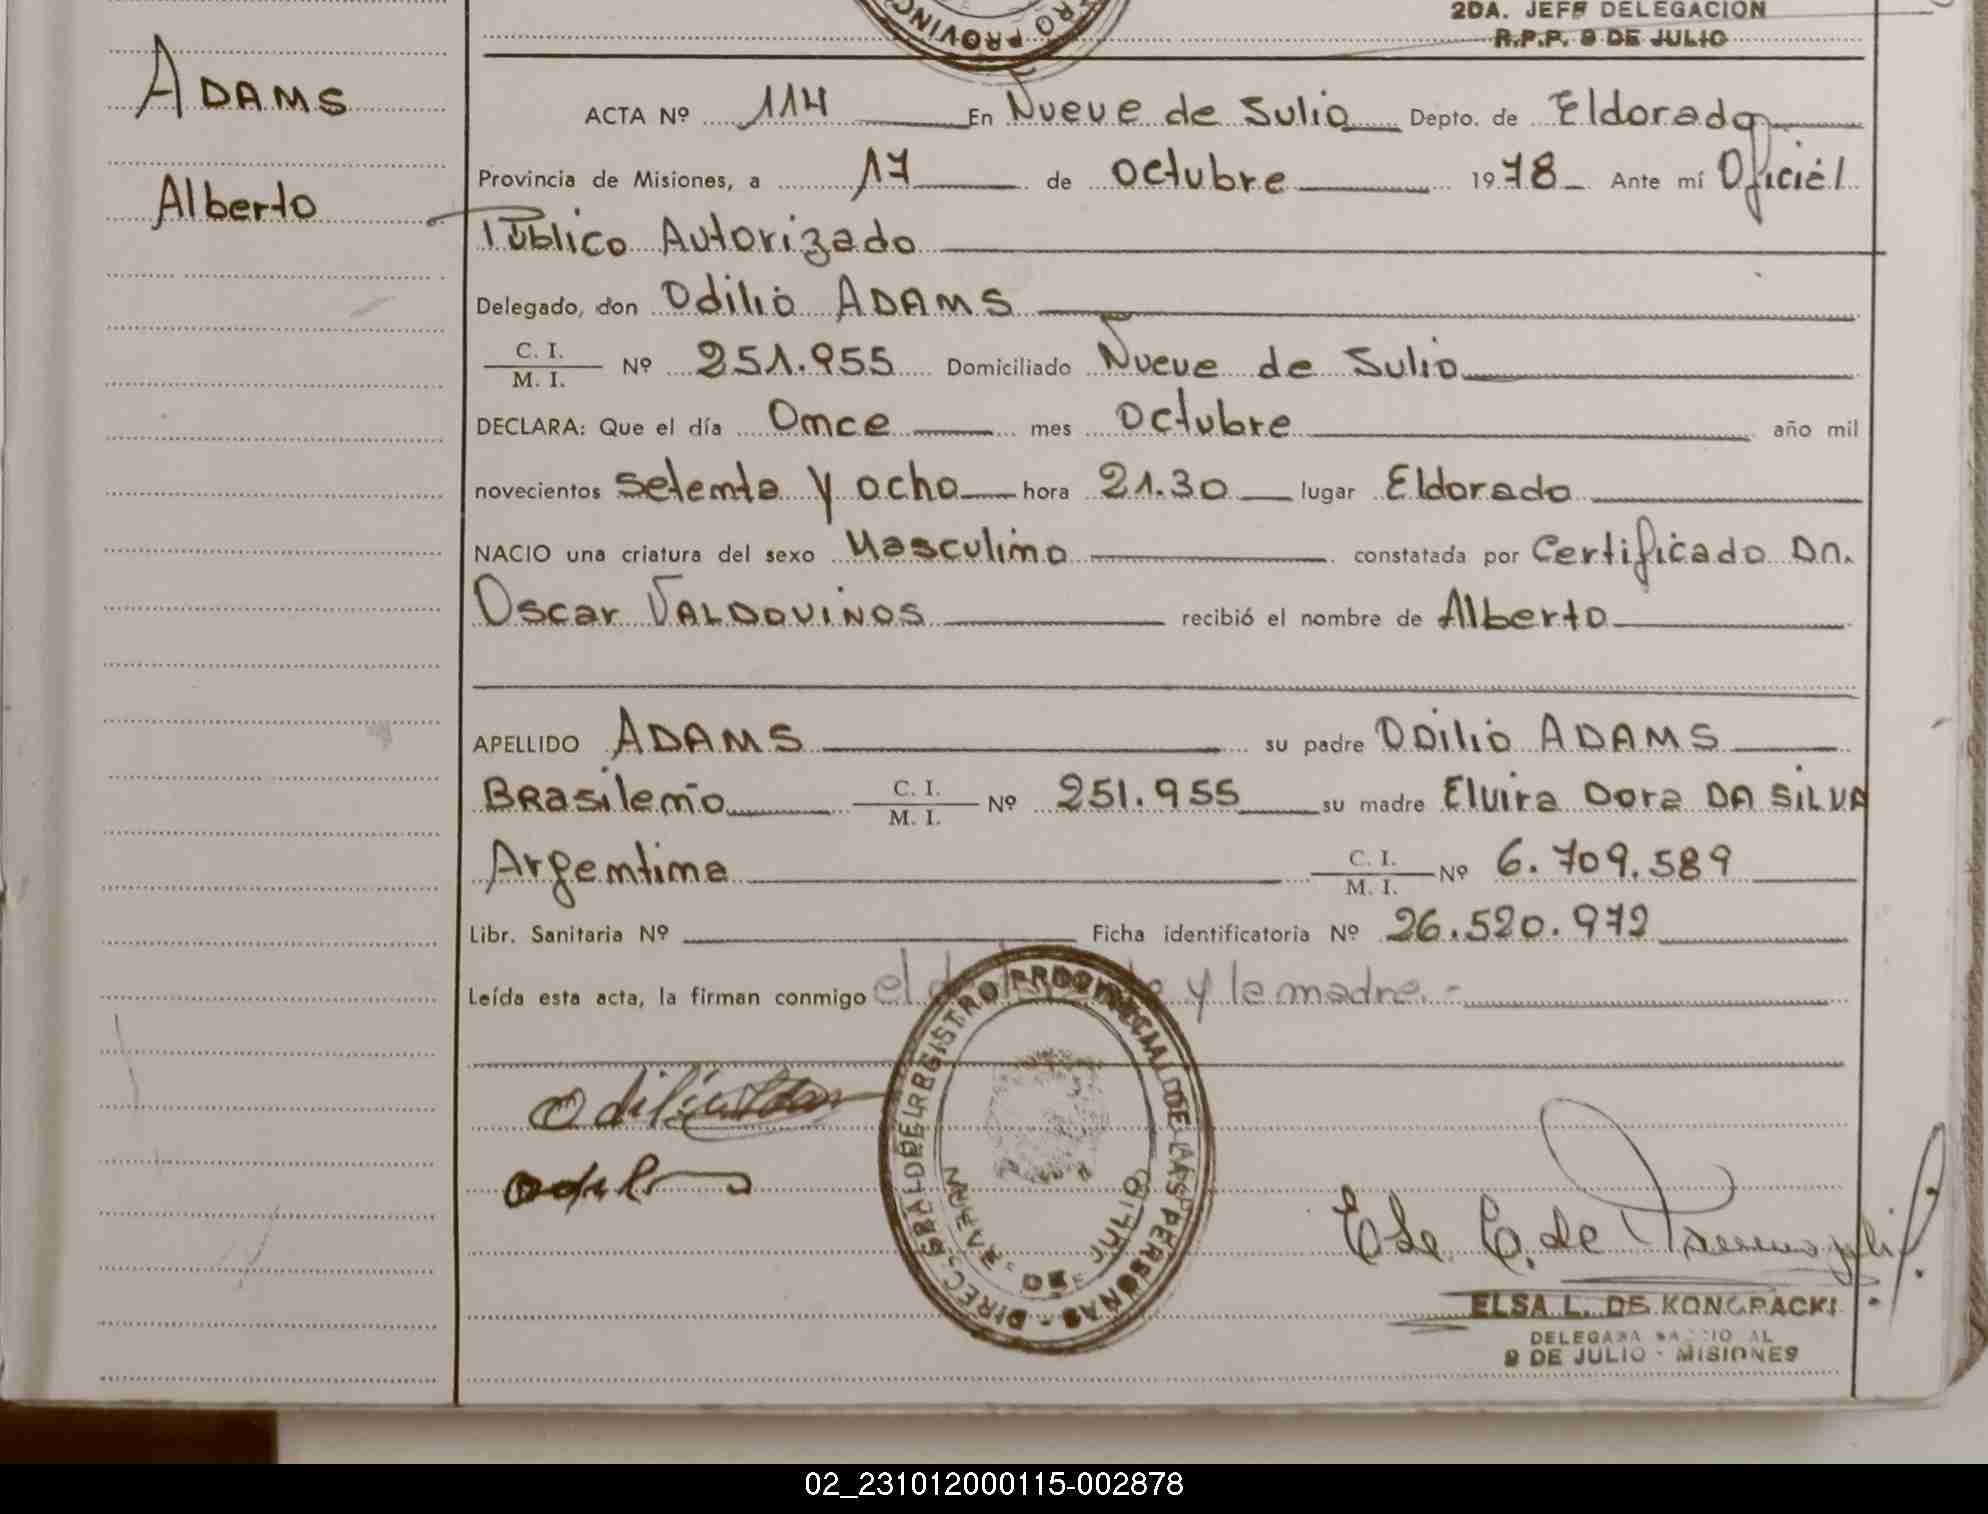 2DA. JEFE DELEGACION
R.P.P. 9 DE JULIO
RO PROVINC
ADAMS
Alberto
ACTA Nº 114 En Nueve de Julio Depto. de Eldorado
Provincia de Misiones, a 17 de octubre 1978 Ante mí Oficial
Público Autorizado
Delegado, don Odilio ADAMS
C. I.
M. I. Nº 251.955 Domiciliado Nueve de Julio
DECLARA: Que el día Once mes octubre año mil
novecientos setenta y ocho hora 21.30 lugar Eldorado
NACIO una criatura del sexo Masculino constatada por Certificado Dn.
Oscar VALDOVINOS recibió el nombre de Alberto
APELLIDO ADAMS su padre ODILIO ADAMS
Brasileño C. I.
M. I. Nº 251.955 su madre Elvira Dora DA SILVA
Argentina C. I.
M. I. Nº 6.709.589
Libr. Sanitaria Nº Ficha identificatoria Nº 26.520.972
Leída esta acta, la firman conmigo el y la madre.-
DIREC. GRAL DEL REGISTRO PROVINCIAL DE LAS PERSONAS
NUEVE DE JULIO
ELSA L. DE KONGRACKI
9 DE JULIO - MISIONES
02_231012000115-002878